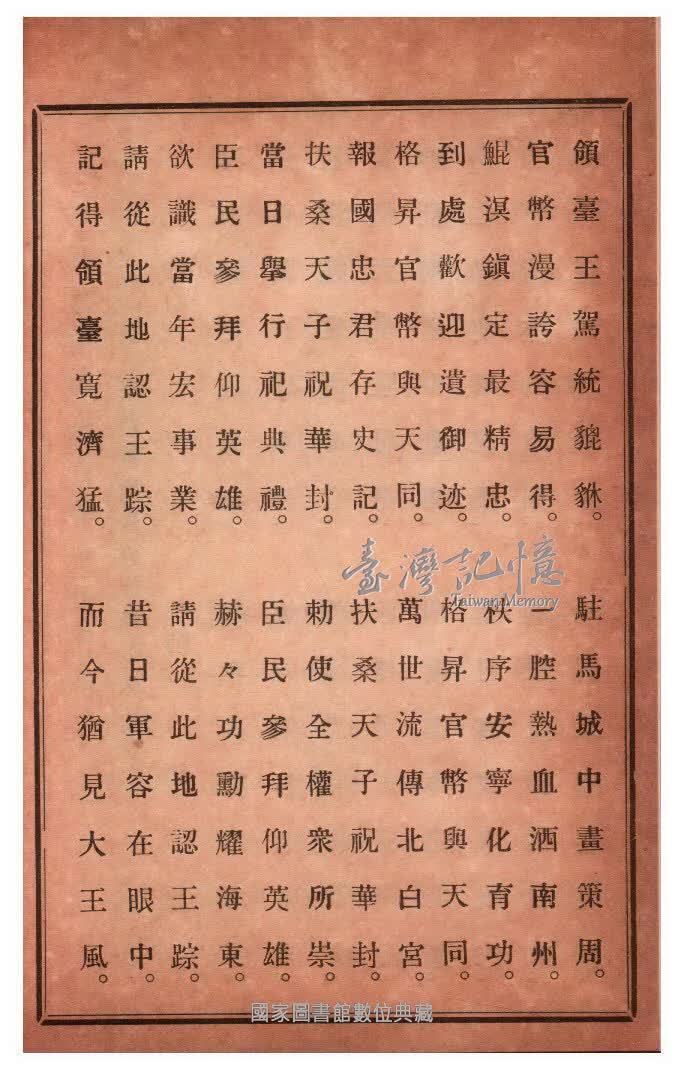 領臺王駕統貔貅。駐馬城中畫策周。
官幣漫誇容易得。一腔熱血洒南州。
鯤溟鎭定最精忠。秩序安寧化育功。
到處歡迎遺御迹。格昇官幣與天同。
格昇官幣與天同。萬世流傳北白宮。
報國忠君存史記。扶桑天子祝華封。
扶桑天子祝華封。勅使全權衆所崇。
當日擧行祀典禮。臣民參拜仰英雄。
臣民參拜仰英雄。赫々功勳耀海東。
欲識當年宏事業。請從此地認王踪。
請從此地認王踪。昔日軍容在眼中。
記得領臺寬濟猛。而今猶見大王風。
臺灣記憶
Taiwan Memory
國家圖書館數位典藏